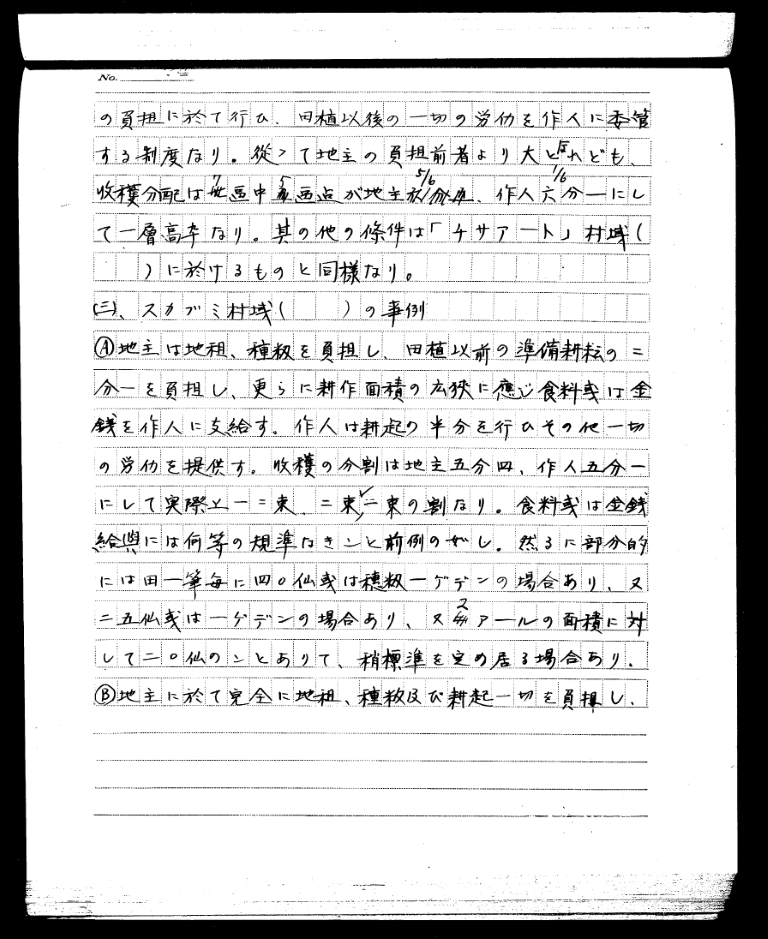 No.
の負担に於て行ひ、田植以後の一切の労働を作人に委管
する制度なり。從つて地主の負担前者より大なれども、
收穫分配は 5/6 が地主 、作人 1/6 六分一にし
て一層高率なり。其の他の條件は「チサアート」村域(
)に於けるものと同様なり。
(三)、スカブミ村域( )の事例
Ⓐ地主は地租、種籾を負担し、田植以前の準備耕耘の二
分一を負担し、更らに耕作面積の広狭に應じ食料或は金
銭を作人に支給す。作人は耕起の半分を行ひその他一切
の労働を提供す。收穫の分割は地主五分四、作人五分一
にして実際上一二束、二束一束の割なり。食料或は金銭
給與には何等の規準なきこと前例の如し。然るに部分的
には田一筆毎に四〇仙或は穂籾一ゲデンの場合あり、又
二五仙或は一ゲデンの場合あり、又 アールの面積に対
して二〇仙のことありて、稍標準を定め居る場合あり。
Ⓑ地主に於て完全に地租、種籾及び耕起一切を負担し、